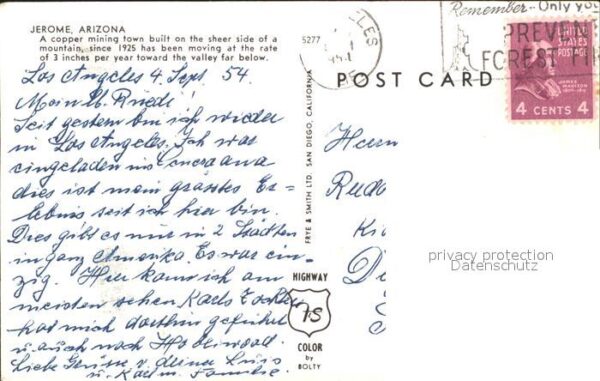 JEROME, ARIZONA
A copper mining town built on the sheer side of a
mountain, since 1925 has been moving at the rate
of 3 inches per year toward the valley far below.
Los Angeles 4. Sept. 54.
Mein lb. Riedi!
Seit gestern bin ich wieder
in Los Angeles. Ich war
eingeladen ins Cinerama
dies ist mein grösstes Er=
lebnis seit ich hier bin.
Dies gibt es nur in 2 Städten
in ganz Amerika. Es war ein-
zig. Hier kann ich am
meisten sehen Karls Tochter
hat mich dorthin geführt
u. auch nach Holliwood.
Liebe Grüsse v. deiner
u. Karl m. Familie.
5277
FRYE & SMITH LTD. SAN DIEGO, CALIFORNIA
HIGHWAY
75
COLOR
by
BOLTY
Remember-Only you
PREVENT
FOREST FI
UNITED
STATES
POSTAGE
JAMES
MADISON
4 CENTS 4
POST CARD
Herrn
privacy protection
Datenschutz